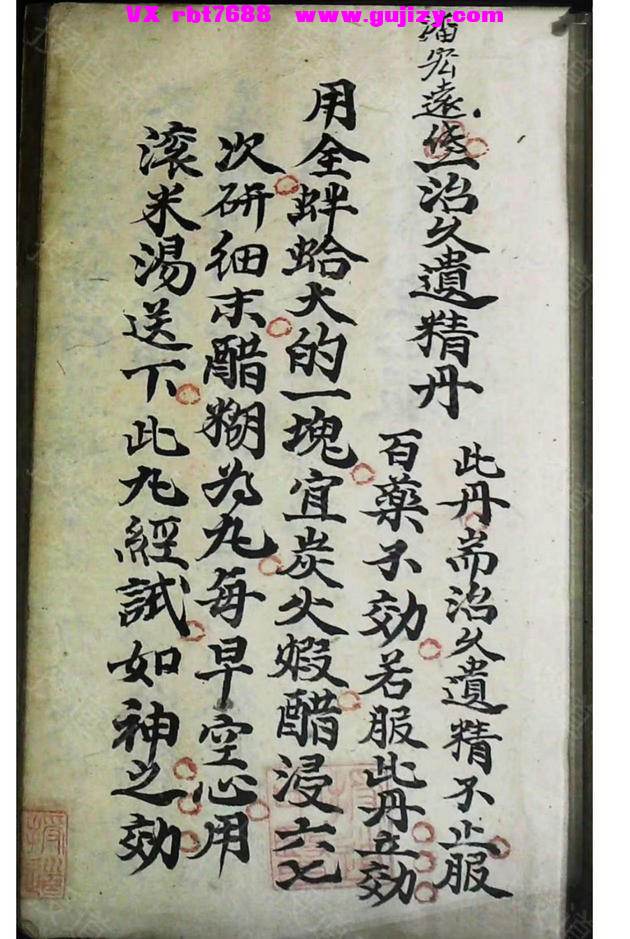 VX rbt7688 www.gujizy.com
潘宏遠治久遺精丹
此丹耑治久遺精不止服
百藥不効若服此丹立効
用全蚌蛤大的一塊宜炭火煆醋浸六七
次研細末醋糊為丸每早空心用
滚米湯送下此丸經試如神之効